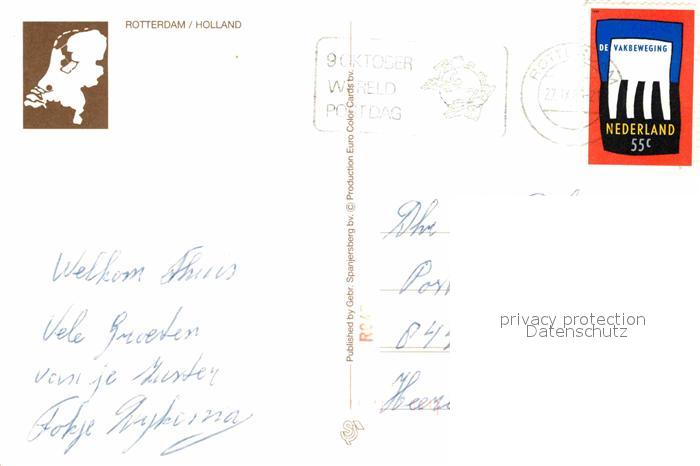 ROTTERDAM / HOLLAND
9 OKTOBER
WERELD
POSTDAG
ROTTERDAM
DE VAKBEWEGING
NEDERLAND
55c
Published by Gebr. Spanjersberg bv. © Production Euro Color Cards bv.
Welkom Thuis
Vele Groeten
van je Zuster
Fokje Dijksma
Dhr
Pos
84
Heer
privacy protection
Datenschutz